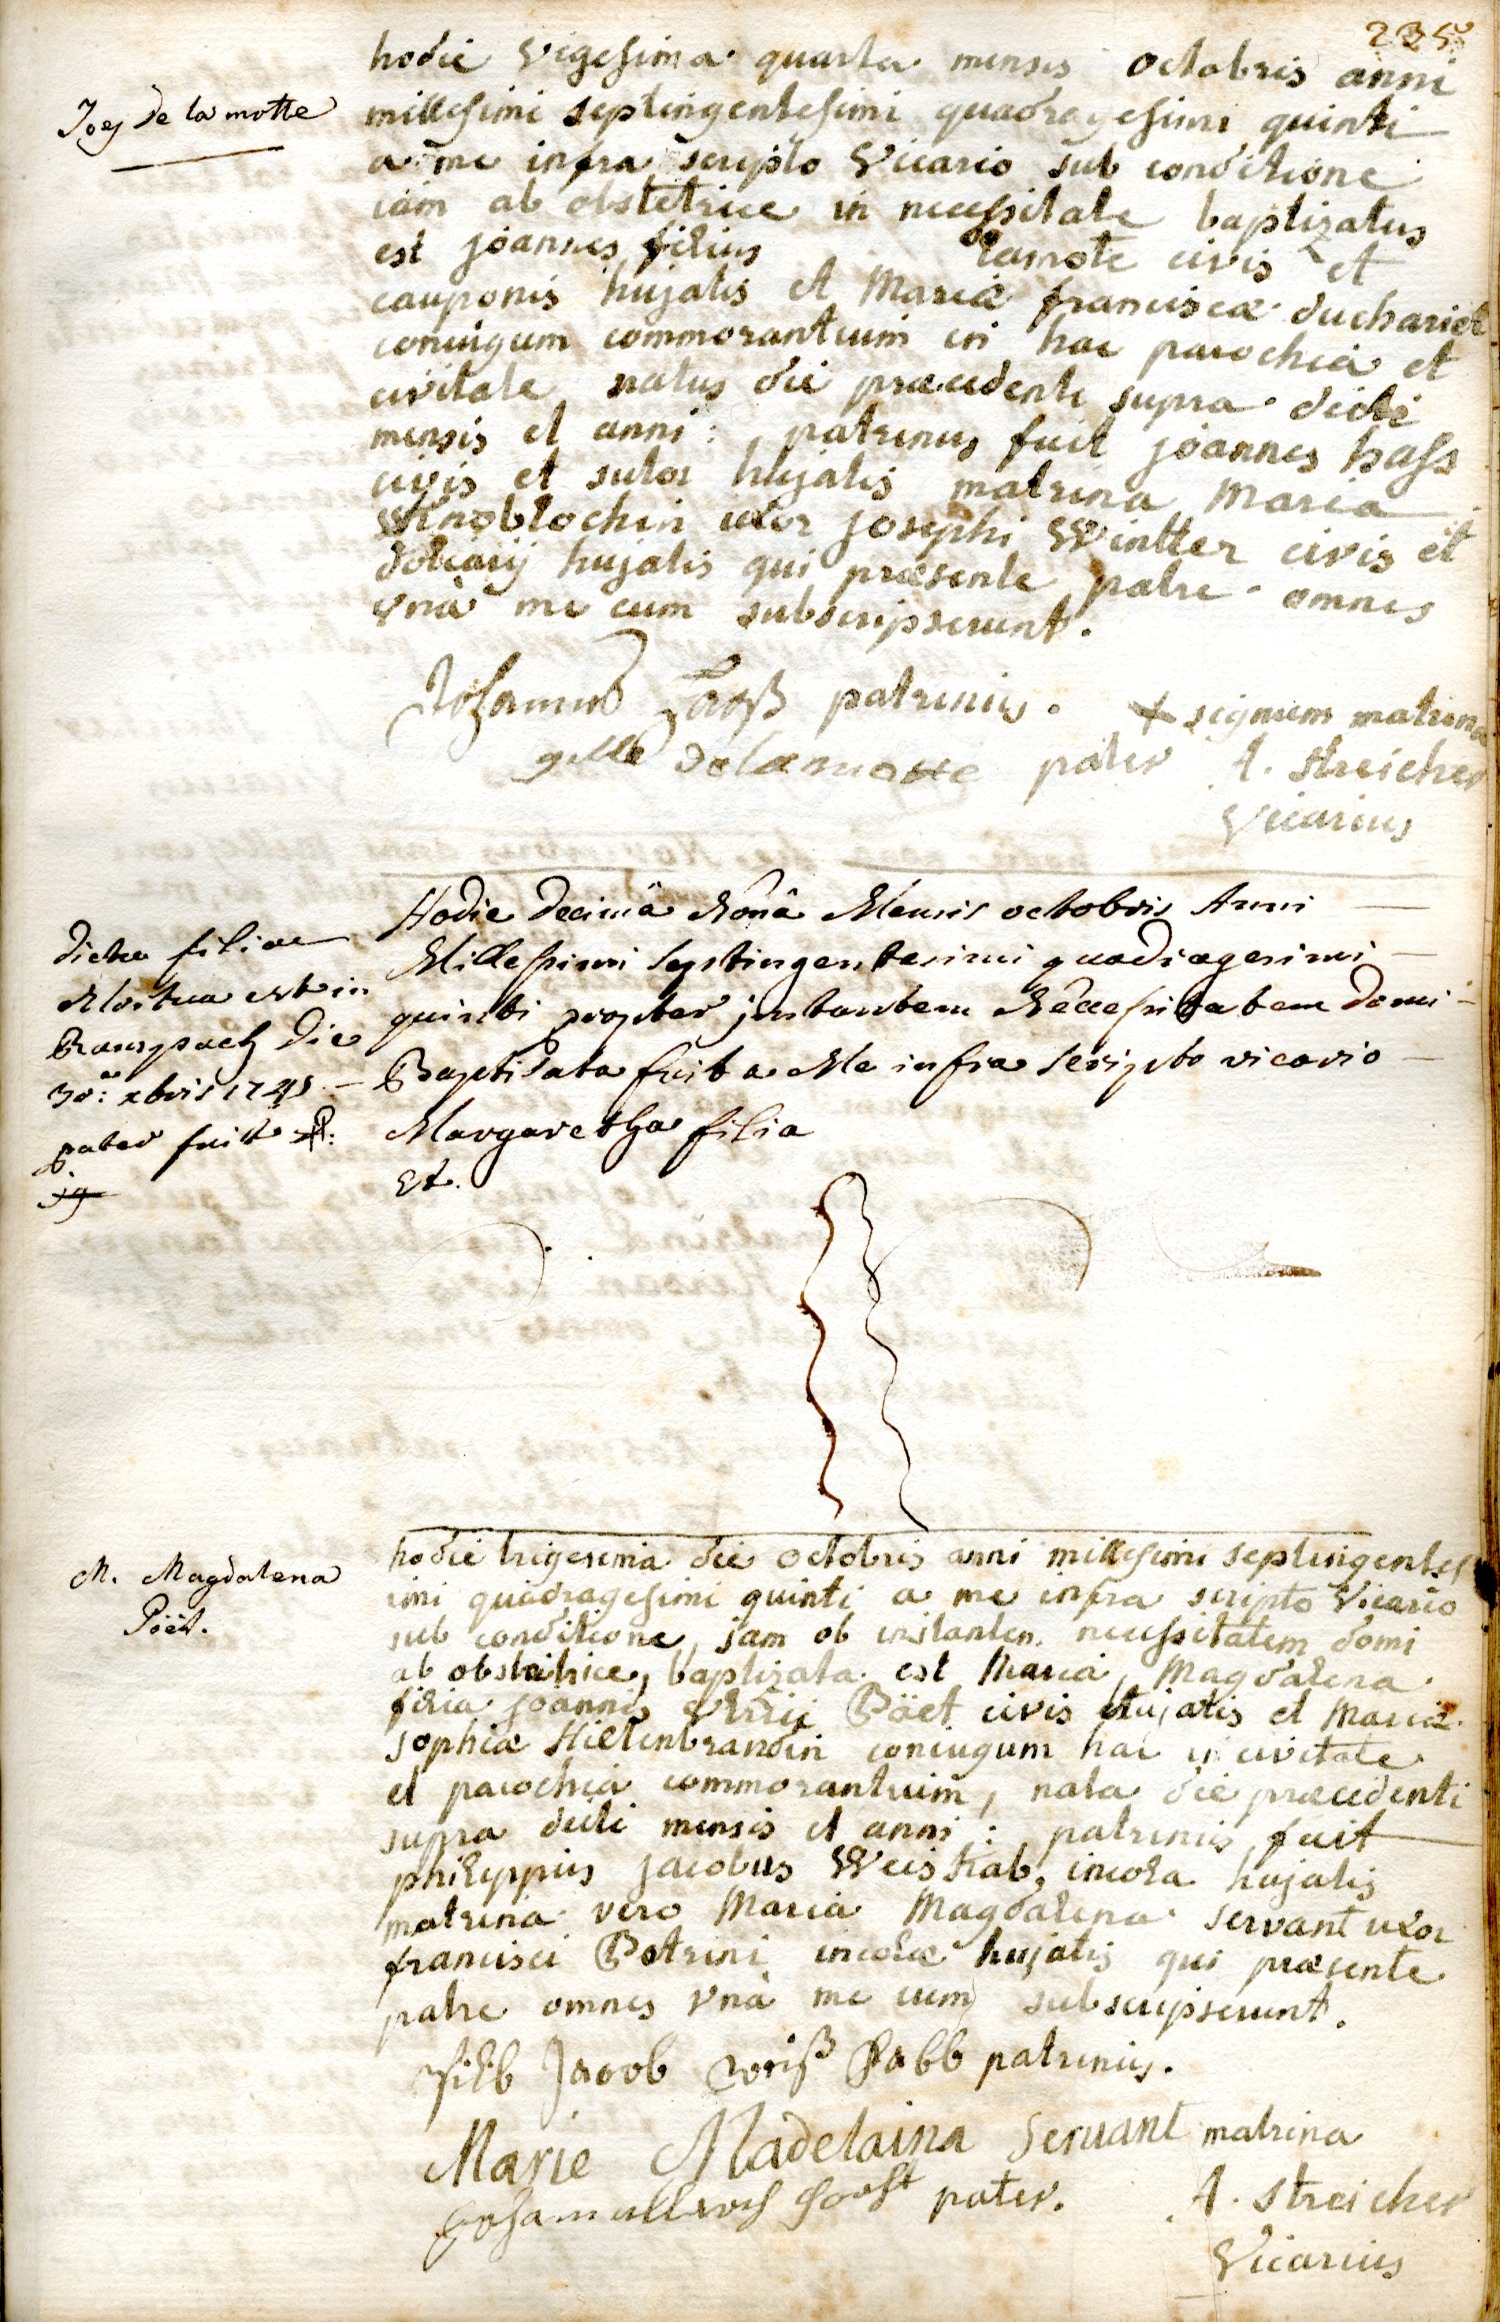 235
hodie Vigesima quarta mensis octobris anni
Joes de la motte
millesimi septingentesimi quadragesimi quinti
a me infra scripto Vicario sub conditione
iam ab obstetrice in necessitate baptizatus
est joannes filius de lamote civis et
cauponis hujatis et Mariæ franciscæ duchariot
coniugum commorantium in hac parochiâ et
civitate natus die præcedente supra dicti
mensis et anni: patrinus fuit joannes hass
civis et sutor hujatis matrina Maria
Knoblochin uxor josephi Wintter civis et
doliarij hujatis qui præsente patre omnes
vnà me cum subscripserunt.
Johannes Haß patrinus. + signum matrinæ
gille delamotte pater A. Streicher
Vicarius
Hodie decimâ Nonâ Mensis octobris Anni
dicta filia
Millesimi Septingentesimi quadragesimi
Mortua est in
quinti propter instantem Necessitatem domi
Ranspach die
Baptisata fuit a Me infra scripto vicario
30: xbris 1745
Margaretha filia
pater fuit
Et.
M. Magdalena
Poët.
hodie trigesima die octobris anni millesimi septingentes
imi quadragesimi quinti a me infra scripto Vicario
sub conditione, jam ob instantem necessitatem domi
ab obstetrice, baptizata est Maria Magdalena
filia joannis Poët civis hujatis et Mariæ
sophiæ Hiltenbrandin coniugum hac in civitate
et parochiâ commorantium, nata die præcedenti
supra dicti mensis et anni: patrinus fuit
philippus jacobus Weiskab, incola hujatis
matrina vero Maria Magdalena servant uxor
francisci Potrini incolæ hujatis qui præsente
patre omnes vnà me cum subscripserunt.
Jacob weiß Kabb patrinus.
Marie Madelaina Seruant matrina
pater. A. Streicher
Vicarius